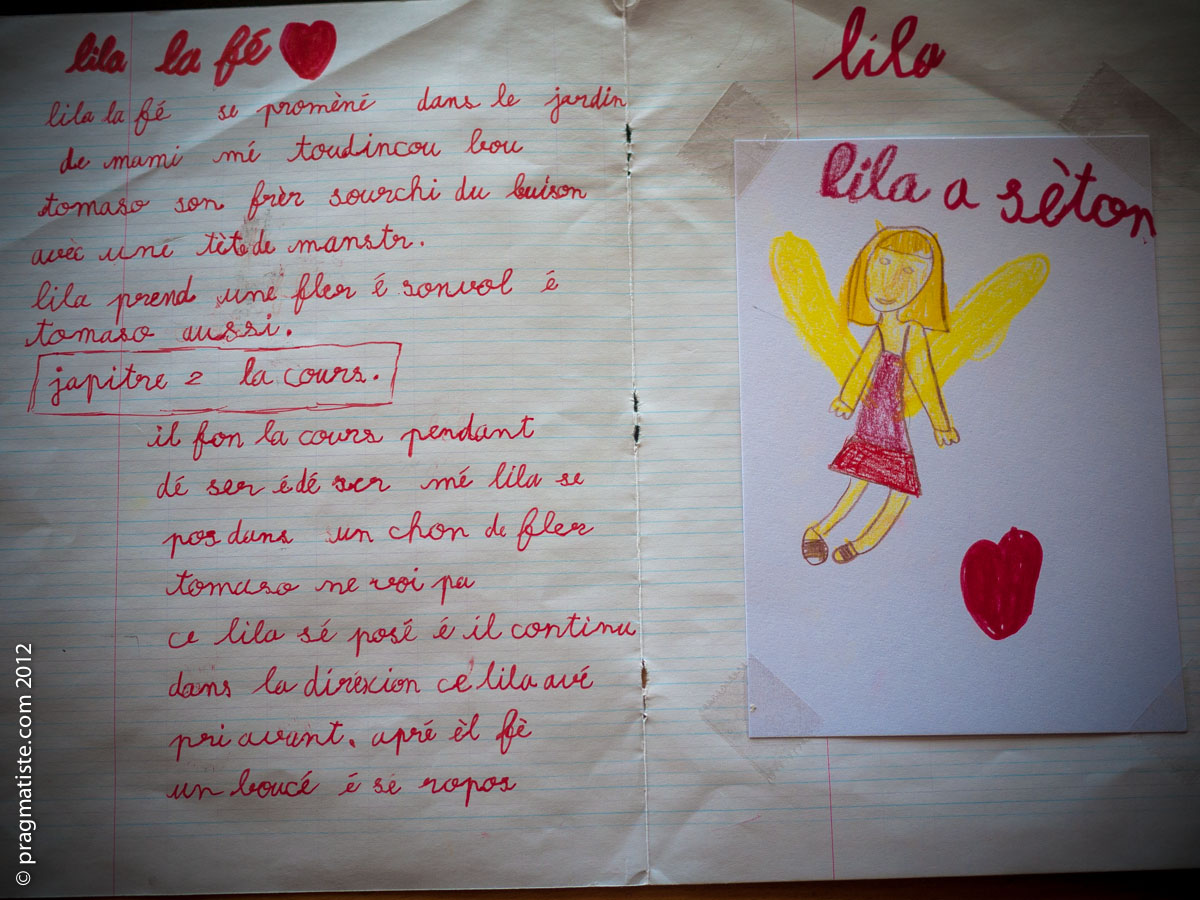 lila la fé
lila la fé se promèné dans le jardin
de mami mé toudincou bou
tomaso son frèr sourchi du buison
avèc uni tète de manstr.
lila prend une fler é sonvol é
tomaso aussi.
japitre 2 la cours.
il fon la cours pendant
dé ser édé ser mé lila se
pos dans un chon de fler
tomaso ne voi pa
ce lila sé posé é il continu
dans la dirèxion ce lila avé
pri avant. apré èl fè
un boucé é se ropos
lila
lila a sèton
© pragmatiste.com 2012